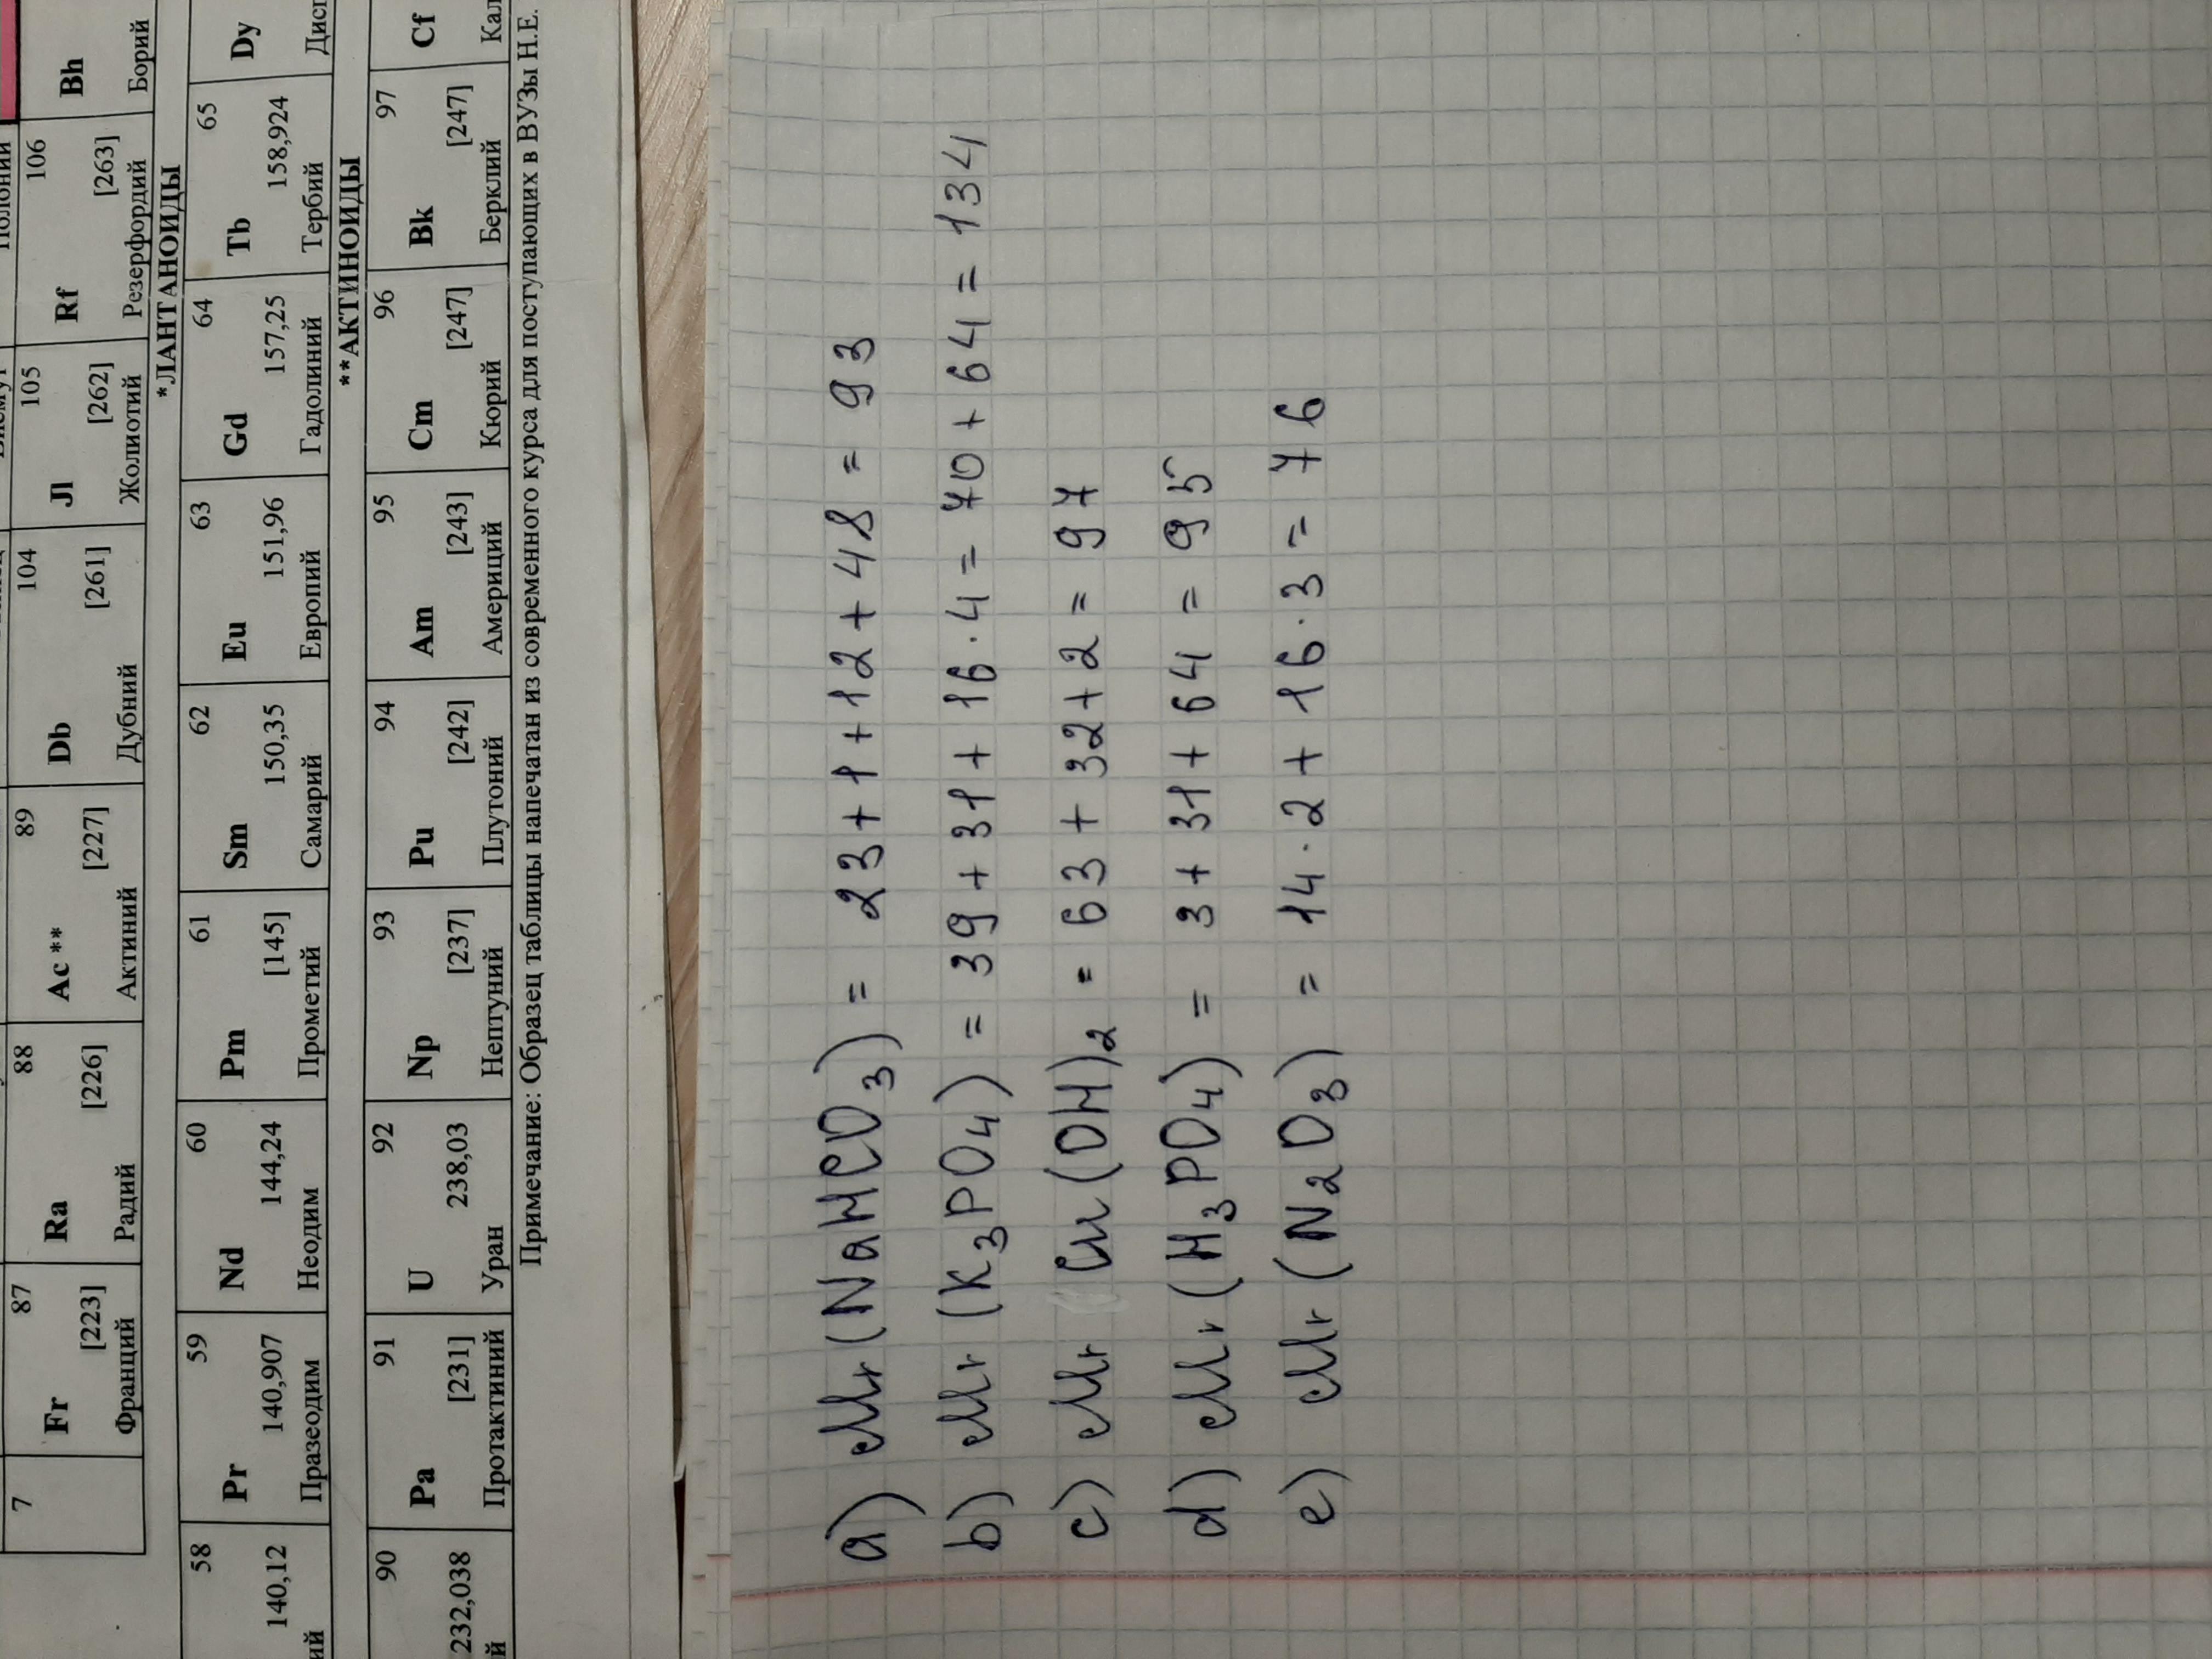 Полоний
7
Fr 87
[223]
Франций
Ra 88
[226]
Радий
Ac** 89
[227]
Актиний
Db 104
[261]
Дубний
Jl 105
[262]
Жолиотий
Rf 106
[263]
Резерфордий
Bh
Борий
*ЛАНТАНОИДЫ
58
140,12
ий
Pr 59
140,907
Празеодим
Nd 60
144,24
Неодим
Pm 61
[145]
Прометий
Sm 62
150,35
Самарий
Eu 63
151,96
Европий
Gd 64
157,25
Гадолиний
Tb 65
158,924
Тербий
Dy
Дисп
**АКТИНОИДЫ
90
232,038
й
Pa 91
[231]
Протактиний
U 92
238,03
Уран
Np 93
[237]
Нептуний
Pu 94
[242]
Плутоний
Am 95
[243]
Америций
Cm 96
[247]
Кюрий
Bk 97
[247]
Берклий
Cf
Кал
Примечание: Образец таблицы напечатан из современного курса для поступающих в ВУЗы Н.Е.
a) Mr (NaHCO3) = 23 + 1 + 12 + 48 = 93
b) Mr (K3PO4) = 39 + 31 + 16 · 4 = 70 + 64 = 134
c) Mr Cu (OH)2 = 63 + 32 + 2 = 97
d) Mr (H3PO4) = 3 + 31 + 64 = 95
e) Mr (N2O3) = 14 · 2 + 16 · 3 = 76